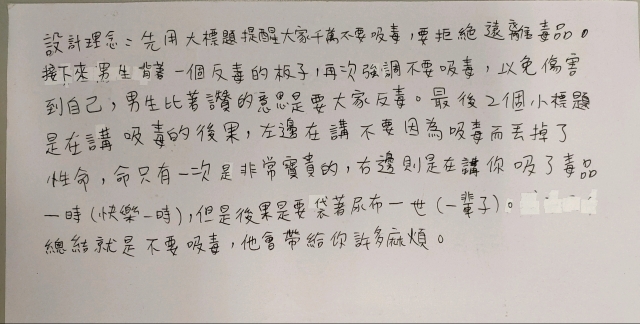 設計理念：先用大標題提醒大家千萬不要吸毒，要拒絕遠離毒品。
接下來男生背著一個反毒的板子，再次強調不要吸毒，以免傷害
到自己，男生比著讚的意思是要大家反毒。最後2個小標題
是在講吸毒的後果，左邊在講不要因為吸毒而丟掉了
性命，命只有一次是非常寶貴的，右邊則是在講你吸了毒品
一時(快樂一時)，但是後果是要袋著尿布一世(一輩子)。
總結就是不要吸毒，他會帶給你許多麻煩。